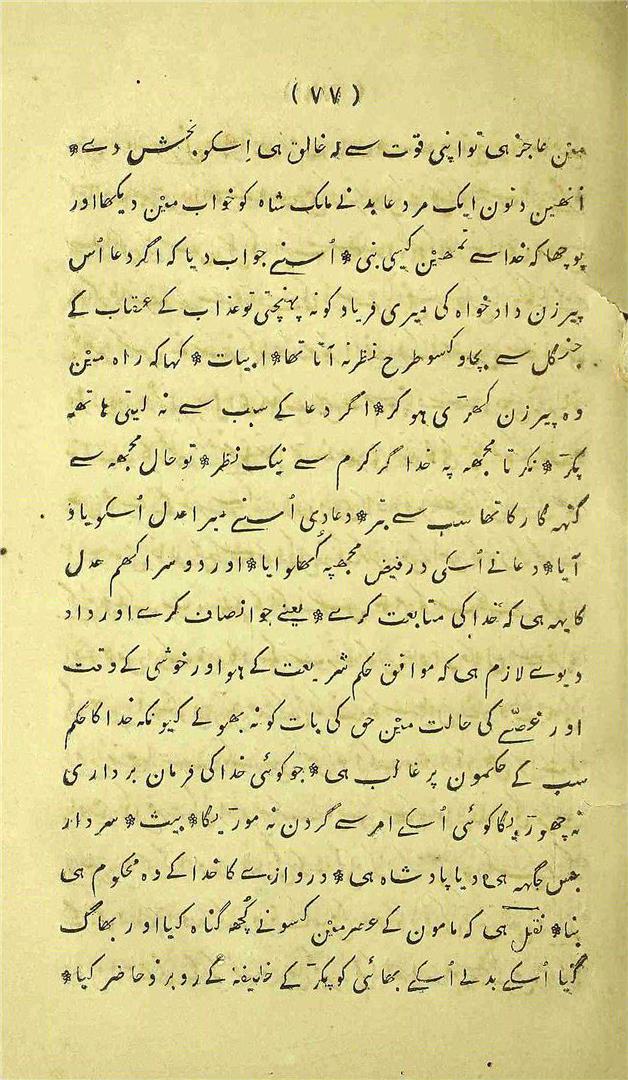 ( ٧٧ )
مین عاجز ہی تو اپنی قوت سے کہ خالق ہی اِسکو بخش دے *
اُنھین دنون ایک مرد عابد نے ملک شاہ کو خواب مین دیکھا اور
پوچھا کہ خدا سے تمھین کیسی بنی * اُسنے جواب دیا کہ اگر دعا اُس
پیرزن داد خواہ کی میری فریاد کو نہ پہنچتی تو عذاب کے عقاب کے
چنگل سے بچاو کسو طرح نظر نہ آتا تھا * ابیات * کہا کہ راہ مین
وہ پیرزن کھڑی ہو کر * اگر دعا کے سبب سے نہ لیتی ہاتھہ
پکڑ * نکرتا مجھہ پہ خدا گر کرم سے نیک نظر * تو حال مجھہ سے
گنہہ گار کا تھا سب سے بتر * دعا دی اُسنے میرا عدل اُسکو یاد
آیا * دعا نے اُسکی در فیض مجھپہ کُھلوایا * اور دوسرا کھم عدل
کا یہہ ہی کہ خدا کی متابعت کرے * یعنے جو انصاف کرے اور داد
دیوے لازم ہی کہ موافق حکم شریعت کے ہو اور خوشی کے وقت
اور غصّے کی حالت مین حق کی بات کو نہ بھولے کیونکہ خدا کا حکم
سب کے حکمون پر غالب ہی * جو کوئی خدا کی فرمان برداری
نہ چھوڑیگا کوئی اُسکے امر سے گردن نہ موڑیگا * بیت * سردار
جس جگہہ ہی و یا پادشاہ ہی * دروازے کا خدا کے وہ محکوم ہی
بنا * نقل ہی کہ مامون کے عصر مین کسونے کُچھہ گناہ کیا اور بھاگ
گیا اُسکے بدلے اُسکے بھائی کو پکڑ کے خلیفہ کے روبرو حاضر کیا *